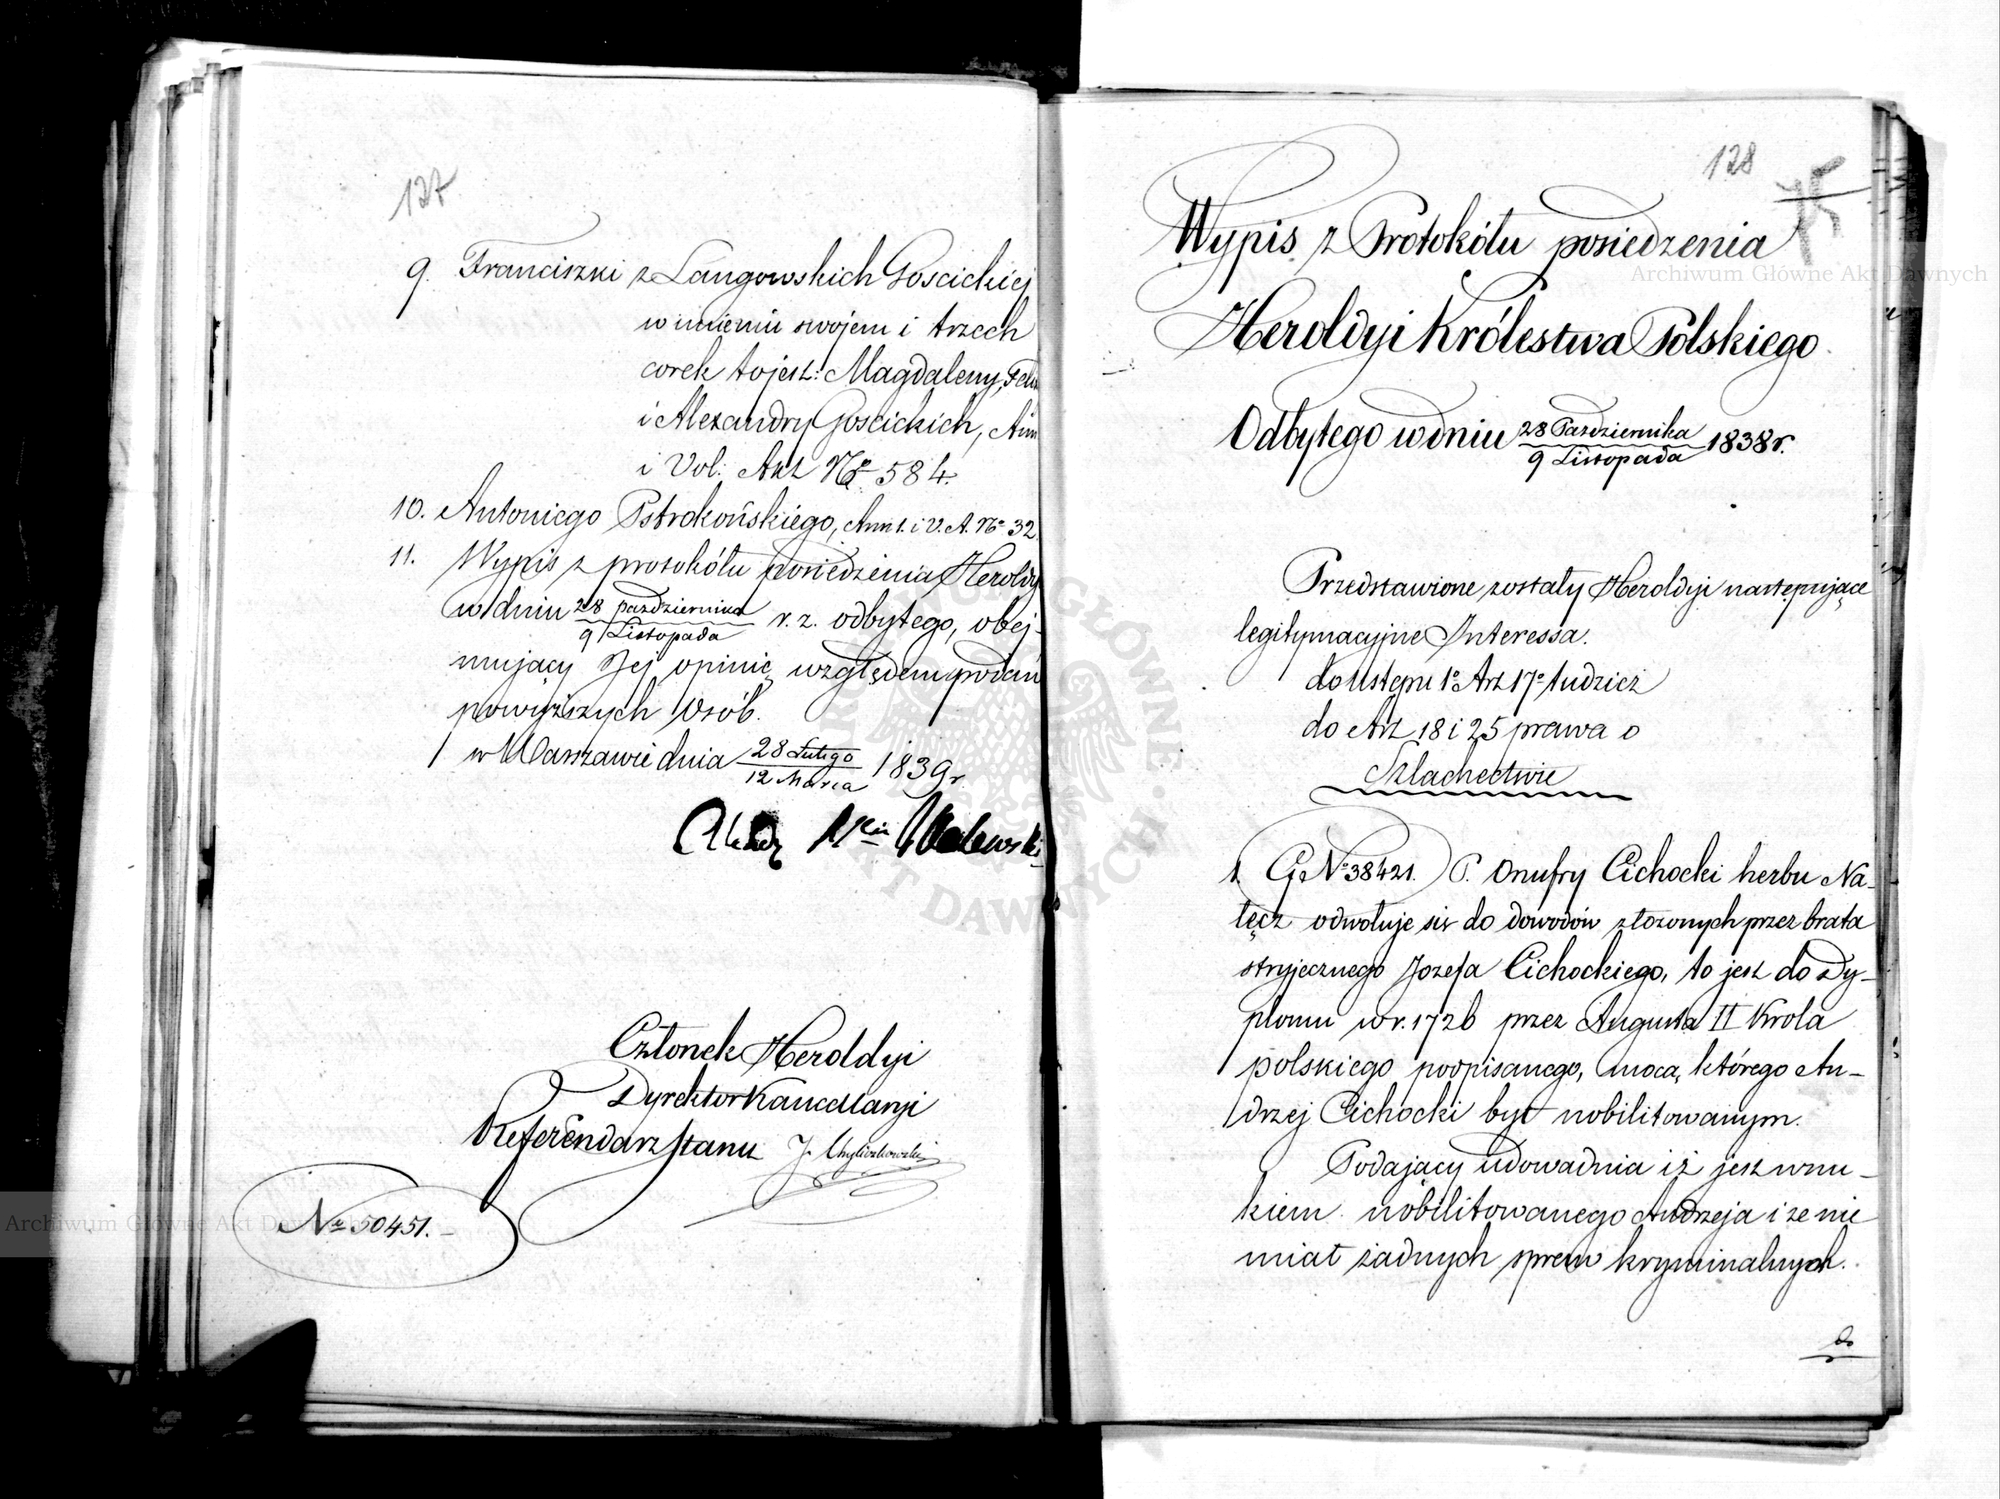 127
9. Franciszki z Langowskich Gościckiej
w imieniu swojem i trzech
corek to jest: Magdaleny,
i Alexandry Gościckich,
i Vol: Akt No 584.
10. Antoniego Pstrokońskiego, Ann 1. i V. A. No 32.
11. Wypis z protokółu posiedzenia Heroldy
w dniu 28 października / 9 Listopada r. z. odbytego, obej-
mujący Jej opinię względem podań
powyższych Osób.
w Warszawie dnia 28 Lutego / 12 Marca 1839 r.
Członek Heroldyi
Dyrektor Kancellaryi
Referendarz Stanu
No 50451.-
128
Wypis z Protokółu posiedzenia
Heroldyi Królestwa Polskiego.
Odbytego w dniu 28 Października / 9 Listopada 1838 r.
Przedstawione zostały Heroldyi następujące
legitymacyjne Interessa.
do ustępu 1o Art 17o tudzież
do Art 18 i 25 prawa o
Szlachectwie
1. G No 38421. P. Onufry Cichocki herbu Na-
łęcz odwołuje się do dowodów złożonych przez brata
stryjecznego Jozefa Cichockiego, to jest do Dy-
plomu w r. 1726 przez Augusta II Krola
polskiego podpisanego, mocą którego An-
drzej Cichocki był nobilitowanym.
Podający udowadnia iż jest wnu-
kiem nobilitowanego Andrzeja i że nie
miał żadnych spraw kryminalnych.
Archiwum Główne Akt Dawnych
Archiwum Główne Akt Dawnych
ARCHIWUM GŁÓWNE AKT DAWNYCH